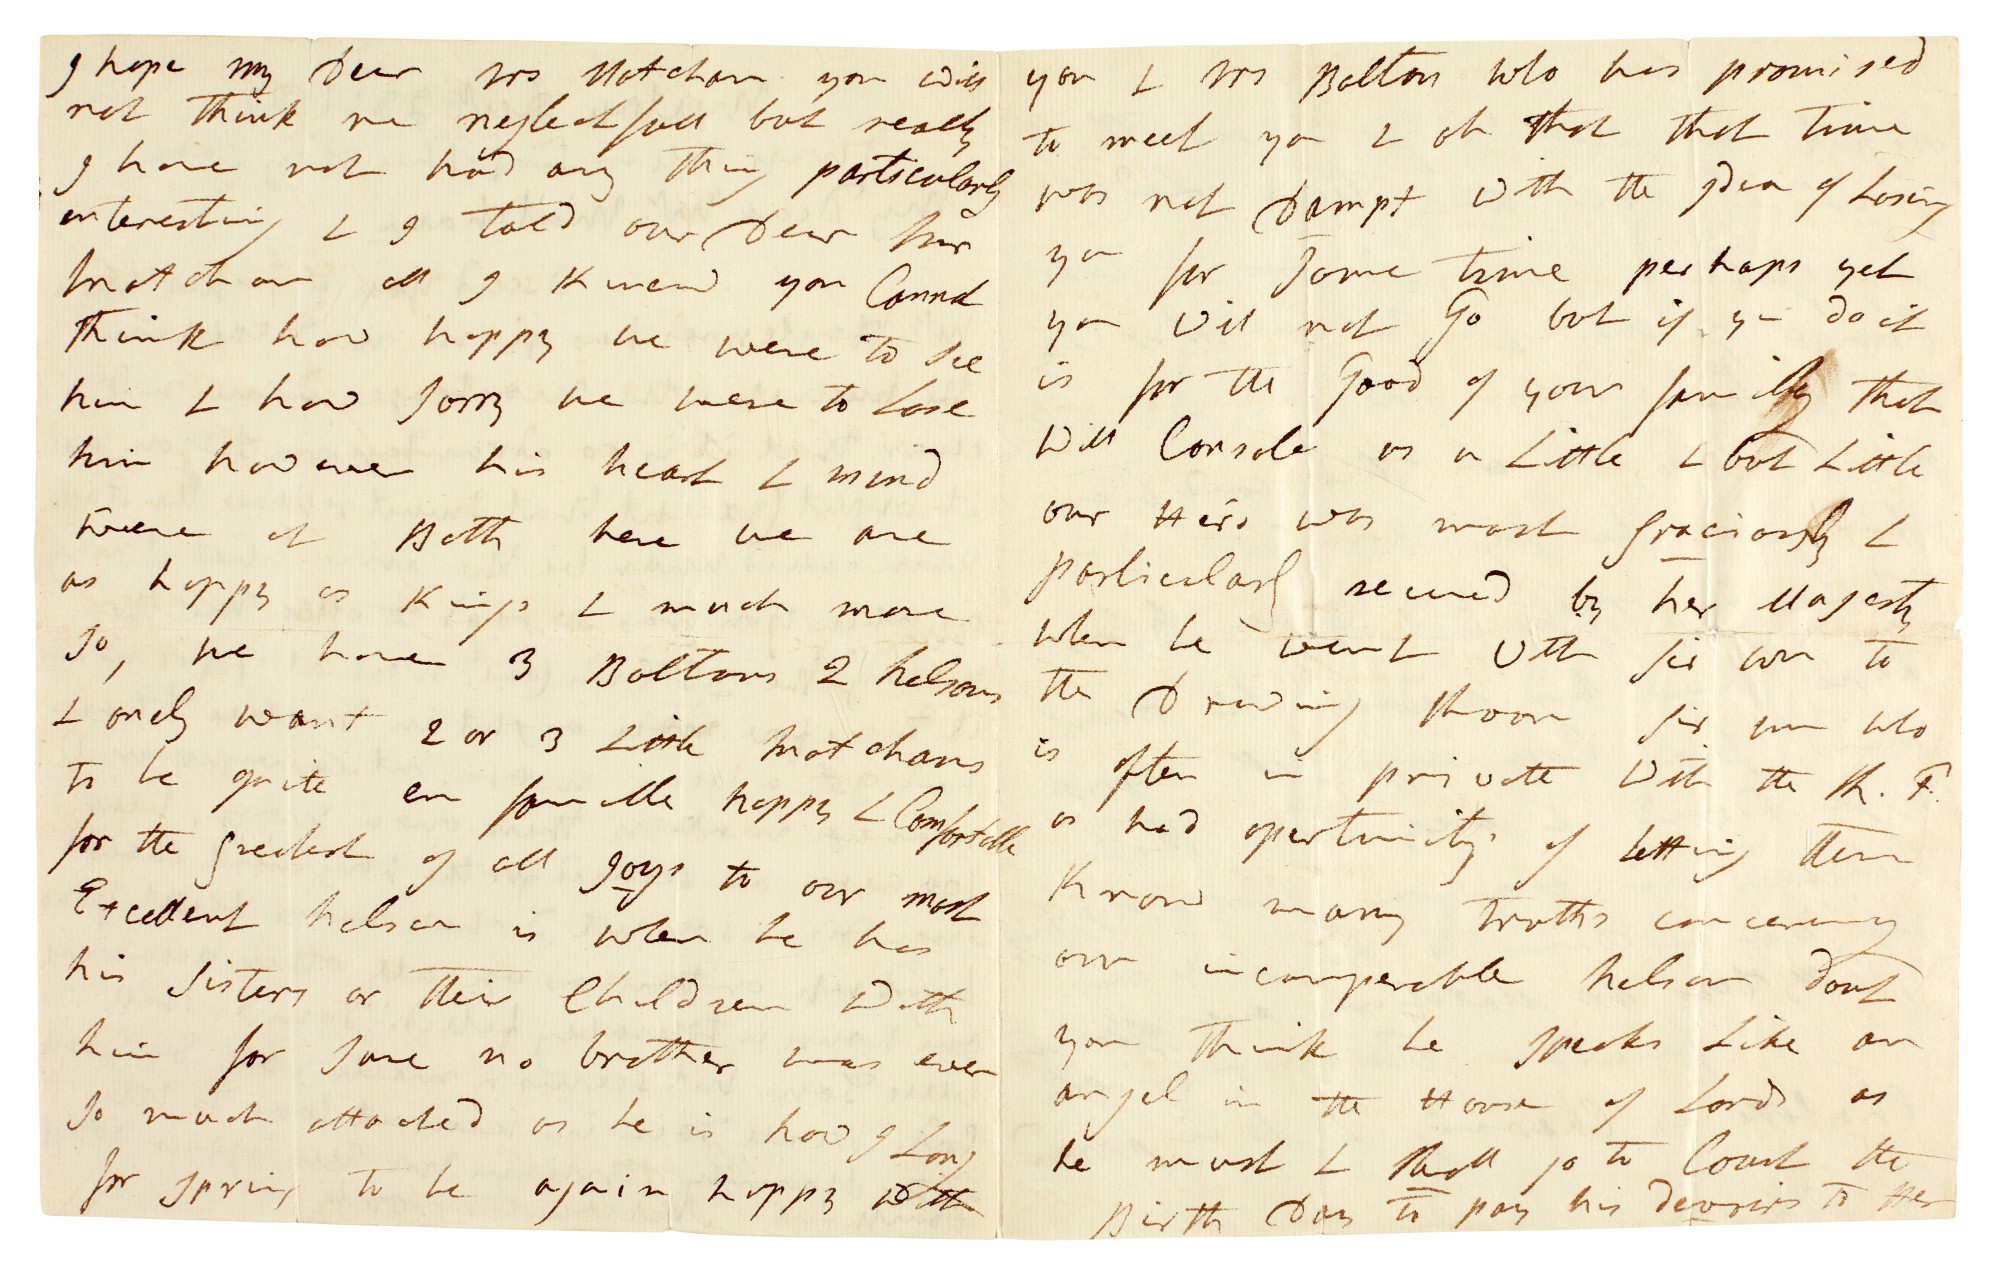 I hope my Dear Mrs Matcham you will
not think me neglectfull but really
I have not had any thing particularly
interesting & I told our Dear Mr
Matcham all I knew you Cannot
think how happy we were to see
him & how sorry we were to Lose
him however his heart & mind
were at Bath here we are
as happy as Kings & much more
so, we have 3 Boltons 2 Nelsons
& only want 2 or 3 Little Matchams
to be quite en famille happy & Comfortable
for the greatest of all Joys to our most
Excellent Nelson is when he has
his Sisters or their Children with
him for sure no brother was ever
so much attached as he is how I Long
for spring to be again happy with
you & Mrs Bolton who has promised
to meet you & oh that that time
was not Dampt with the Idea of Losing
you for some time perhaps yet
you will not Go but if you do it
is for the Good of your family that
will Console us a Little & but Little
our Hero was most graciously &
particularly received by her Majesty
when he went with Sir Wm to
the Drawing Room Sir Wm who
is often in private with the R. F.
as had opertunitys of letting them
Know many truths concerning
our incomperable Nelson dont
you think he speaks Like an
angel in the House of Lords as
he must & shall go to Court the
Birth Day to pay his devoirs to Her